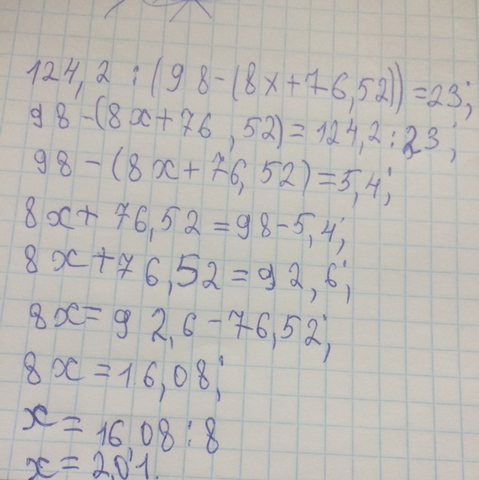 124,2 : (98-(8x+76,52))=23;
98-(8x+76,52)=124,2:23;
98-(8x+76,52)=5,4;
8x+76,52=98-5,4;
8x+76,52=92,6;
8x=92,6-76,52;
8x=16,08;
x=16,08:8
x=2,01.